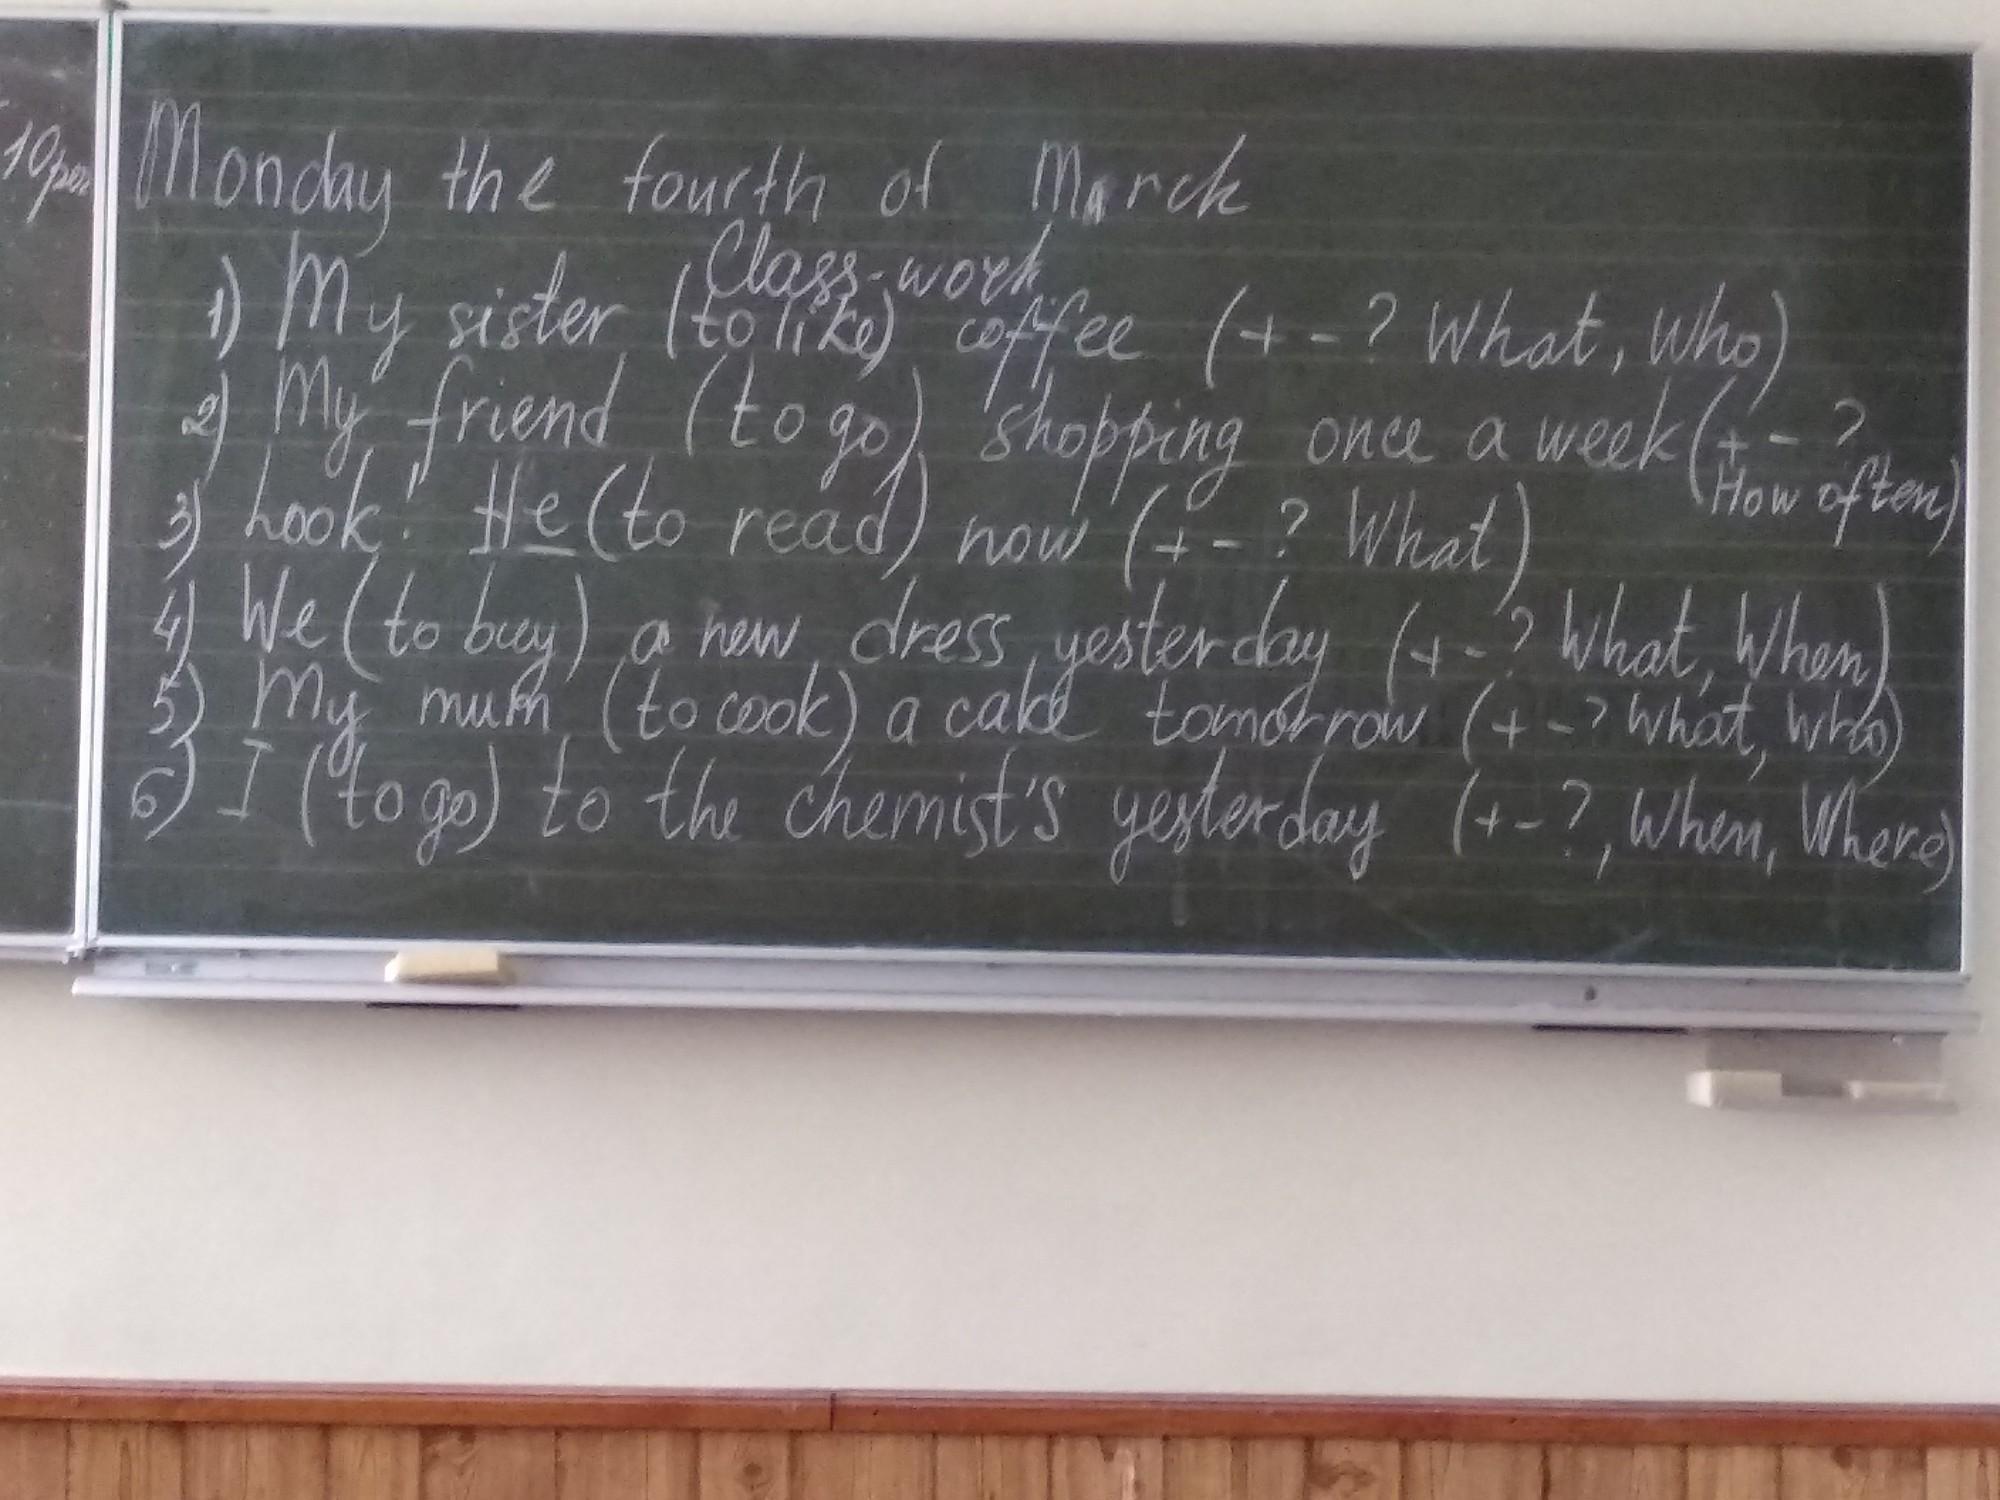 Monday the fourth of March
Class-work
1) My sister (to like) coffee (+ - ? What, Who)
2) My friend (to go) shopping once a week (+ - ?
How often)
3) Look! He (to read) now (+ - ? What)
4) We (to buy) a new dress yesterday (+ - ? What, When)
5) My mum (to cook) a cake tomorrow (+ - ? What, Who)
6) I (to go) to the chemist's yesterday (+ - ?, When, Where)